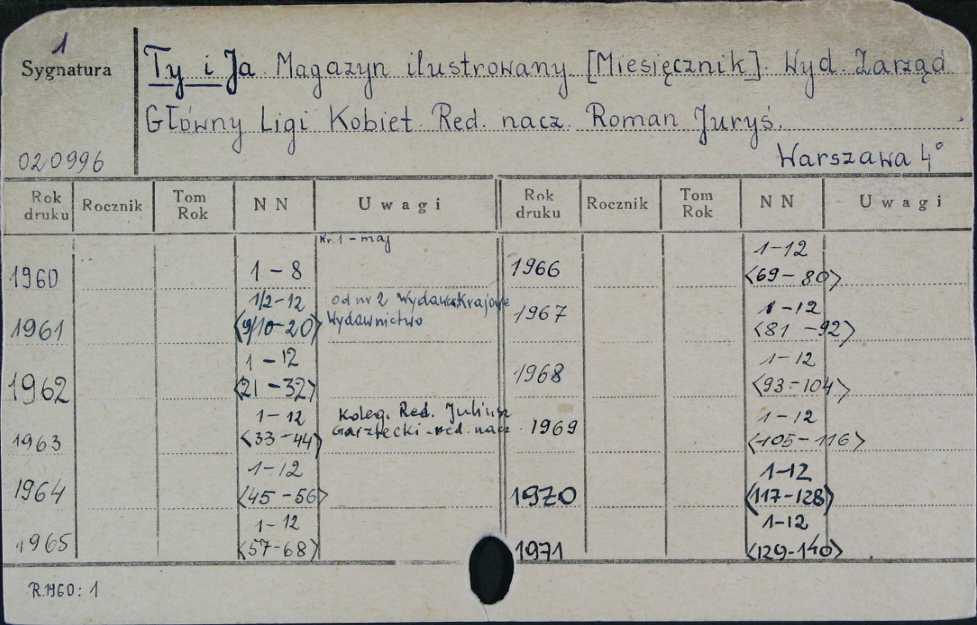 1
Sygnatura
Ty i Ja. Magazyn ilustrowany [Miesięcznik]. Wyd. Zarząd
Główny Ligi Kobiet. Red. nacz. Roman Juryś.
020996
Warszawa 4°
Rok druku Rocznik Tom Rok NN Uwagi Rok druku Rocznik Tom Rok NN Uwagi
Nr. 1 - maj
1960 1-8
1961 1/2-12 <9/10-20> od nr 2 Wydawa Krajowe
Wydawnictwo
1962 1-12 <21-32>
1963 1-12 <33-44> Koleg. Red. Juliusz
Garztecki - red. nacz.
1964 1-12 <45-56>
1965 1-12 <57-68>
1966 1-12 <69-80>
1967 1-12 <81-92>
1968 1-12 <93-104>
1969 1-12 <105-116>
1970 1-12 <117-128>
1971 1-12 <129-140>
R.1960: 1